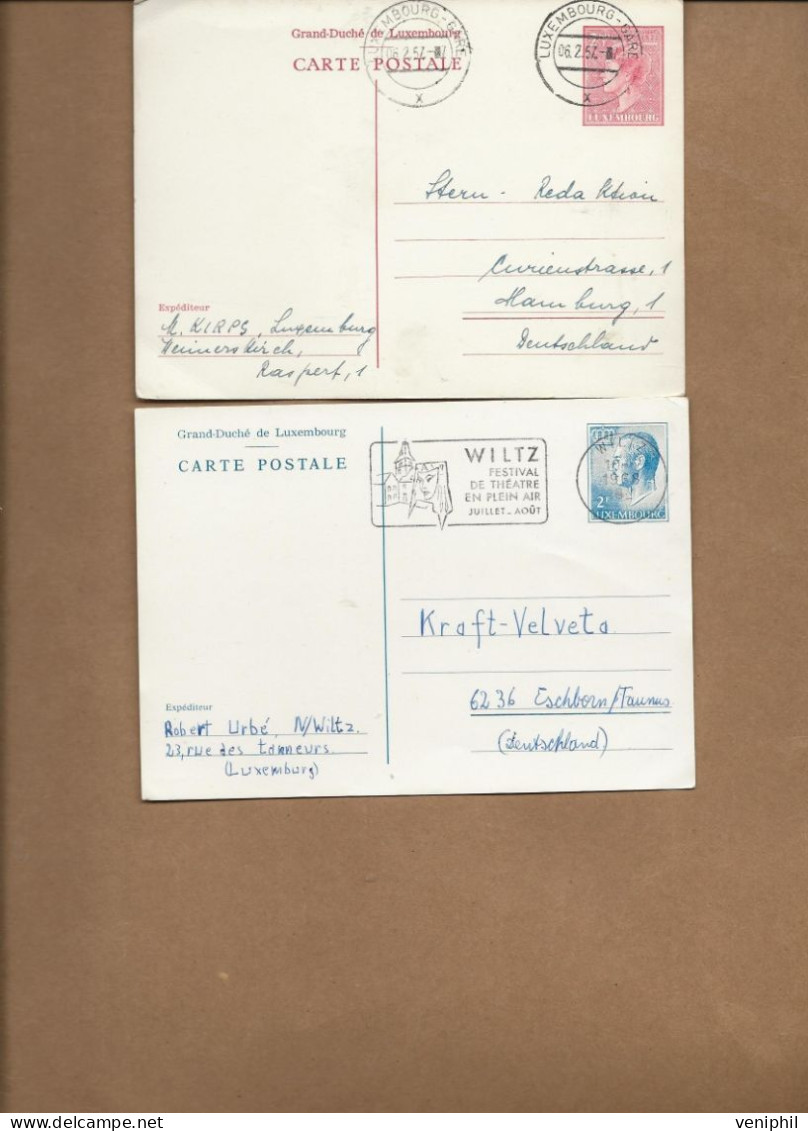 Grand-Duché de Luxembourg
CARTE POSTALE
LUXEMBOURG-GARE
06.2.57
X
LUXEMBOURG-GARE
06.2.57
X
LUXEMBOURG
Stern - Redaktion
Curienstrasse, 1
Hamburg, 1
Deutschland
Expéditeur
M. KIRPS, Luxemburg
Weimerskirch,
Raspert, 1
Grand-Duché de Luxembourg
CARTE POSTALE
WILTZ
FESTIVAL
DE THÉATRE
EN PLEIN AIR
JUILLET - AOÛT
WILTZ
1968
2F
LUXEMBOURG
Kraft-Velveta
6236 Eschborn/Taunus
(Deutschland)
Expéditeur
Robert Urbé, N/Wiltz
23, rue des tanneurs
(Luxemburg)
www.delcampe.net
veniphil